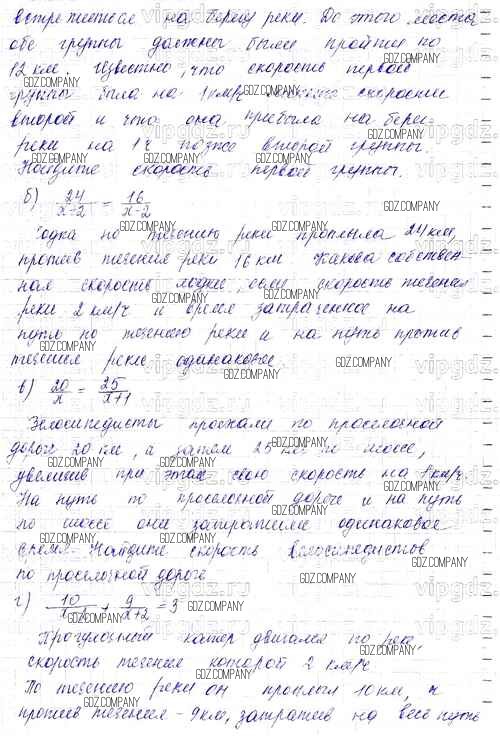 встретиться на берегу реки. До этого места
обе группы должны были пройти по
12 км. Известно, что скорость первой
группы была на 1 км/ч меньше скорости
второй и что она прибыла на берег
реки на 1 ч позже второй группы.
Найдите скорость первой группы.
б) 24/(x+2) = 16/(x-2)
Лодка по течению реки проплыла 24 км,
против течения реки 16 км. Какова собствен-
ная скорость лодки, если скорость течения
реки 2 км/ч и время затраченное на
путь по течению реки и на путь против
течения реки одинаковые.
в) 20/x = 25/(x+1)
Велосипедисты проехали по проселочной
дороге 20 км, а затем 25 км по шоссе,
увеличив при этом свою скорость на 1 км/ч
На путь по проселочной дороге и на путь
по шоссе они затратили одинаковое
время. Найдите скорость велосипедистов
по проселочной дороге
г) 10/ + 9/(x+2) = 3
Прогулочный катер двигался по реке,
скорость течения которой 2 км/ч
По течению реки он проплыл 10 км, а
против течения - 9 км, затратив на весь путь